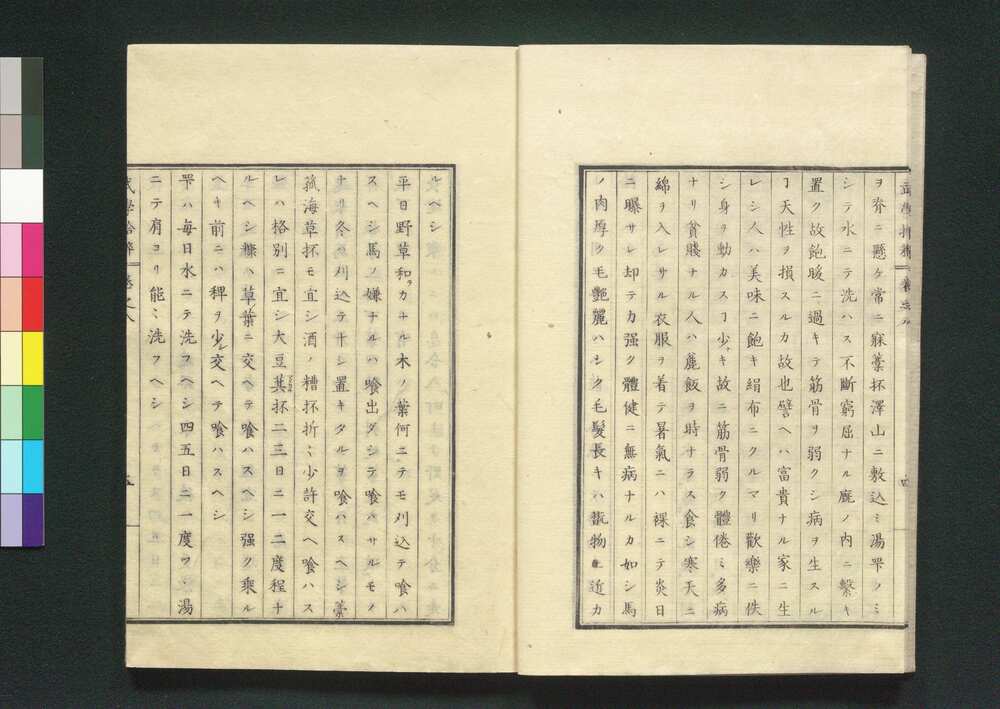 ヲ脊ニ懸ケ常ニ寐藁抔澤山ニ敷込ミ湯罨ノミ
シテ水ニテ洗ハス不斷窮屈ナル廐ノ内ニ繫キ
置ク故飽暖ニ過キテ筋骨ヲ弱クシ病ヲ生スル
ヿ天性ヲ損スルカ故也譬ヘハ富貴ナル家ニ生
レシ人ハ美味ニ飽キ絹布ニクルマリ歡樂ニ佚
シ身ヲ動カスヿ少キ故ニ筋骨弱ク體倦ミ多病
ナリ貧賤ナル人ハ麁飯ヲ時ナラス食シ寒天ニ
綿ヲ入レサル衣服ヲ着テ暑氣ニハ裸ニテ炎日
ニ曝サレ却テカ强ク體健ニ無病ナルカ如シ馬
ノ肉厚ク毛艷麗ハシク毛髮長キハ翫物ニ近カ
ルヘシ
平日野草和ラカナル木ノ葉何ニテモ刈込テ喰ハ
スヘシ馬ノ嫌ナルハ喰出ダシテ喰ハサルモノ
ナリ冬ハ刈込テ干シ置キタルヲ喰ハスヘシ藁
菰海草抔モ宜シ酒ノ糟抔折ミ少許交ヘ喰ハス
レハ格別ニ宜シ大豆萁抔二三日ニ一二度程ナ
ルヘシ糠ハ草葉ニ交ヘテ喰ハスヘシ强ク乘ル
ヘキ前ニハ稗ヲ少シ交ヘテ喰ハスヘシ
罨ハ毎日水ニテ洗フヘシ四五日ニ一度ツヽ湯
ニテ肩コリ能ミ洗フヘシ